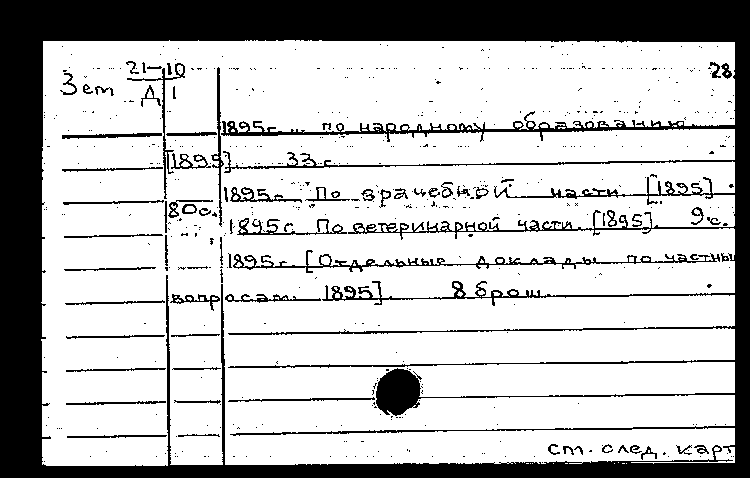 21-10 28.
Зem Д1
1895г. ... по народному образованию.
[1895]. 33 с
1895г. По врачебной части. [1895].
80с.
1895г. По ветеринарной части. [1895]. 9с.
1895г. [Отдельные доклады по частны
вопросам. 1895]. 8 брош.
ст. след. карт